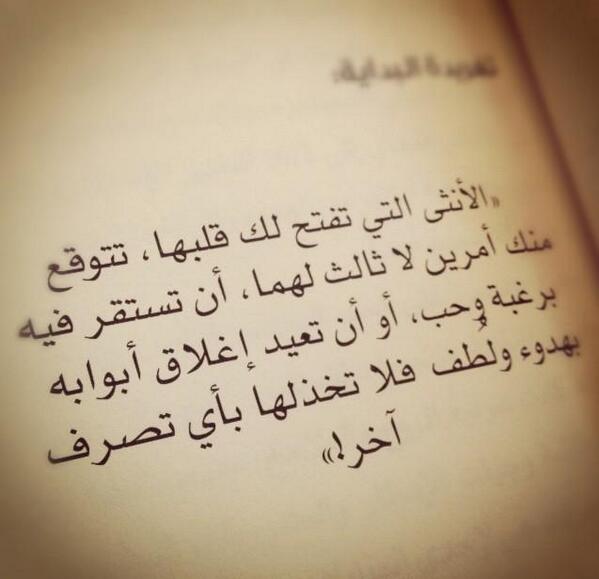 تغريدة البداية:
«الأنثى التي تفتح لك قلبها، تتوقع
منك أمرين لا ثالث لهما، أن تستقر فيه
برغبة وحب، أو أن تعيد إغلاق أبوابه
بهدوء ولُطف فلا تخذلها بأي تصرف
آخر!»